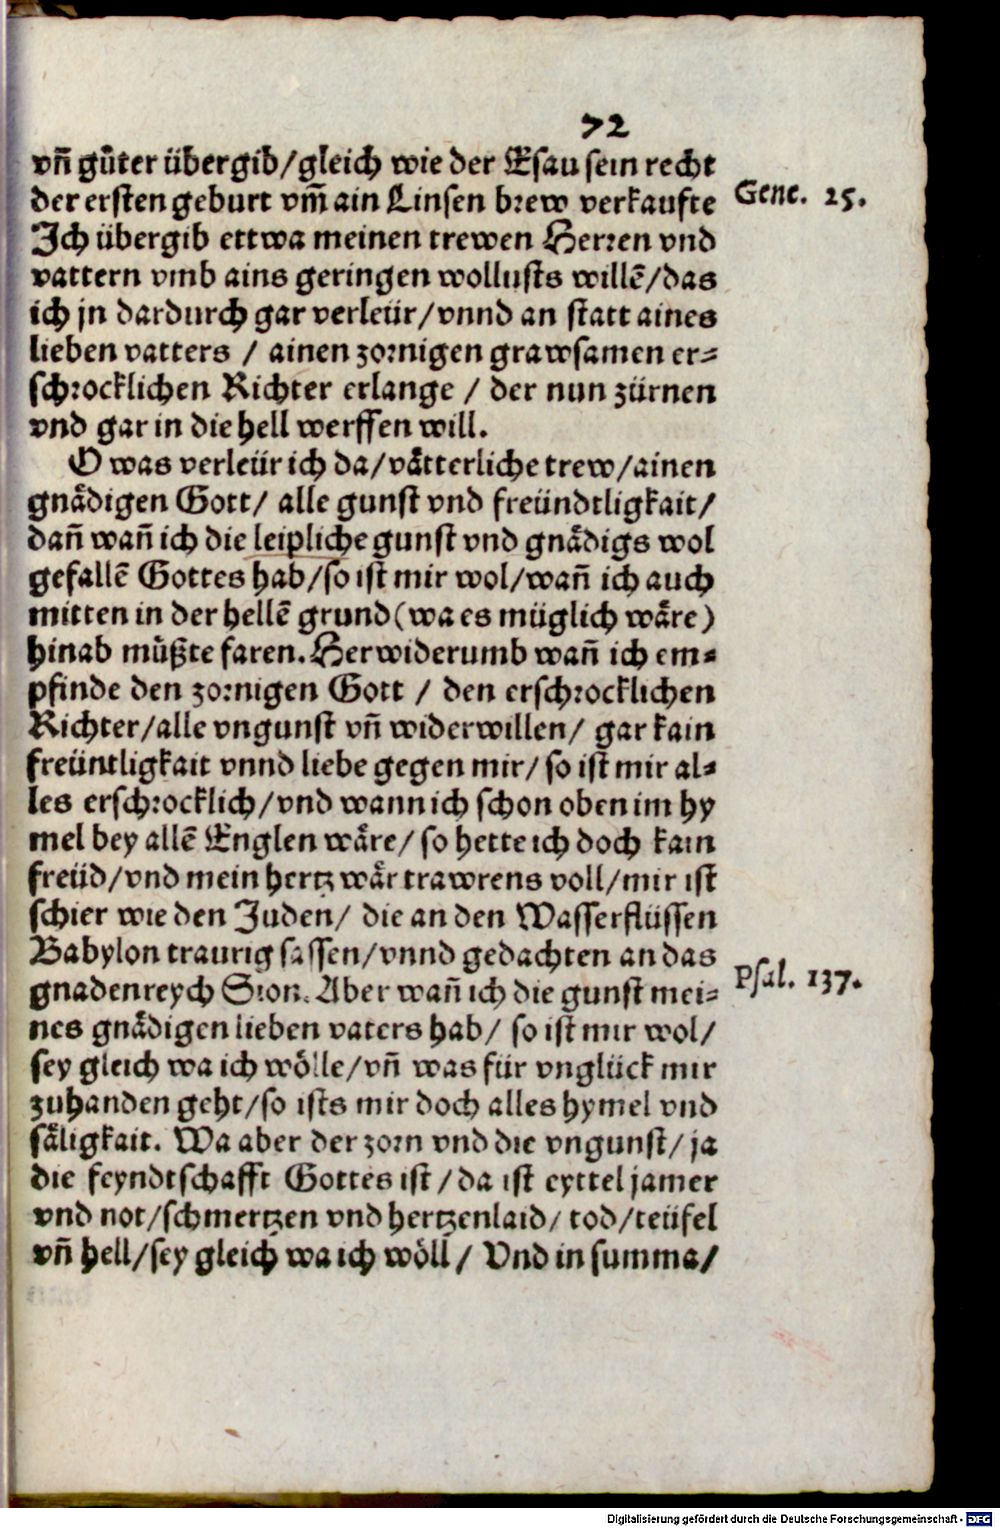 72
vn̄ gůter übergib/gleich wie der Esau sein recht
der ersten geburt vm̄ ain Linsen brew verkaufte
Gene. 25.
Ich übergib ettwa meinen trewen Herren vnd
vattern vmb ains geringen wollusts willē/das
ich jn dardurch gar verleür/vnnd an statt aines
lieben vatters / ainen zornigen grawsamen er⸗
schrocklichen Richter erlange / der nun zürnen
vnd gar in die hell werffen will.
O was verleür ich da/vätterliche trew/ainen
gnädigen Gott/ alle gunst vnd freündtligkait/
dan̄ wan̄ ich die leipliche gunst vnd gnädigs wol
gefallē Gottes hab/so ist mir wol/wan̄ ich auch
mitten in der hellē grund(wa es müglich wäre)
hinab můßte faren. Herwiderumb wan̄ ich em⸗
pfinde den zornigen Gott / den erschrocklichen
Richter/alle vngunst vn̄ widerwillen/ gar kain
freüntligkait vnnd liebe gegen mir/ so ist mir al⸗
les erschrocklich/vnd wann ich schon oben im hy
mel bey allē Englen wäre/ so hette ich doch kain
freüd/vnd mein hertz wär trawrens voll/mir ist
schier wie den Juden/ die an den Wasserflüssen
Babylon traurig sassen/vnnd gedachten an das
gnadenreych Sion. Aber wan̄ ich die gunst mei⸗
Psal. 137.
nes gnädigen lieben vaters hab/ so ist mir wol/
sey gleich wa ich wölle/vn̄ was für vnglück mir
zuhanden geht/so ists mir doch alles hymel vnd
säligkait. Wa aber der zorn vnd die vngunst/ ja
die feyndtschafft Gottes ist / da ist eyttel jamer
vnd not/schmertzen vnd hertzenlaid/ tod/teüfel
vn̄ hell/sey gleich wa ich wöll/ Vnd in summa/
Digitalisierung gefördert durch die Deutsche Forschungsgemeinschaft - DFG